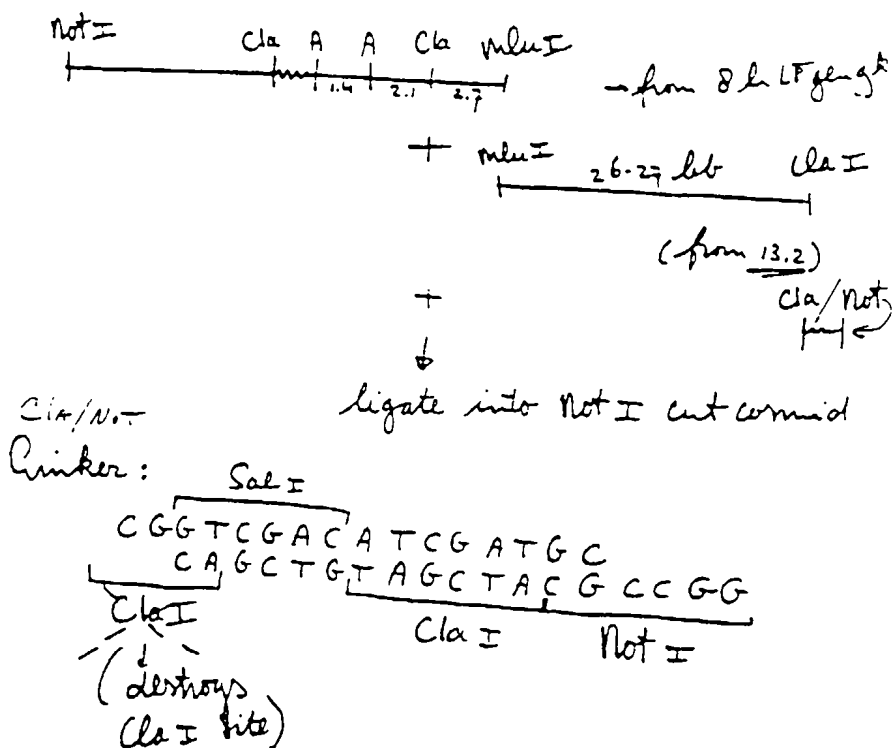 Not I Cla A A Cla mlu I
1.4 2.1 2.7
→ from 8 kb LF
+
mlu I 26-27 kb Cla I
(from 13.2)
Cla/Not
+
ligate into Not I cut cosmid
Cla/Not
Linker:
Sal I
C G G T C G A C A T C G A T G C
C A G C T G T A G C T A C G C C G G
Cla I
Cla I Not I
(destroys
Cla I site)